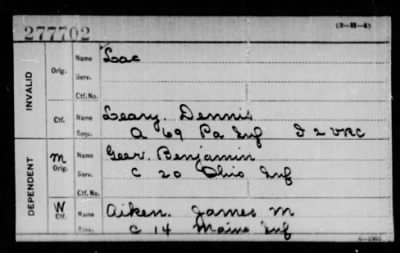 277702 (3-H-4)
INVALID Orig. Name Loc
Serv.
Ctf. No.
Ctf. Name Leary. Dennis
Serv. A 69 Pa Inf I 2 VRC
DEPENDENT M Orig. Name Geer. Benjamin
Serv. C 20 Ohio Inf
Ctf. No.
W Ctf. Name Aiken. James M
Serv. C 14 Maine Inf